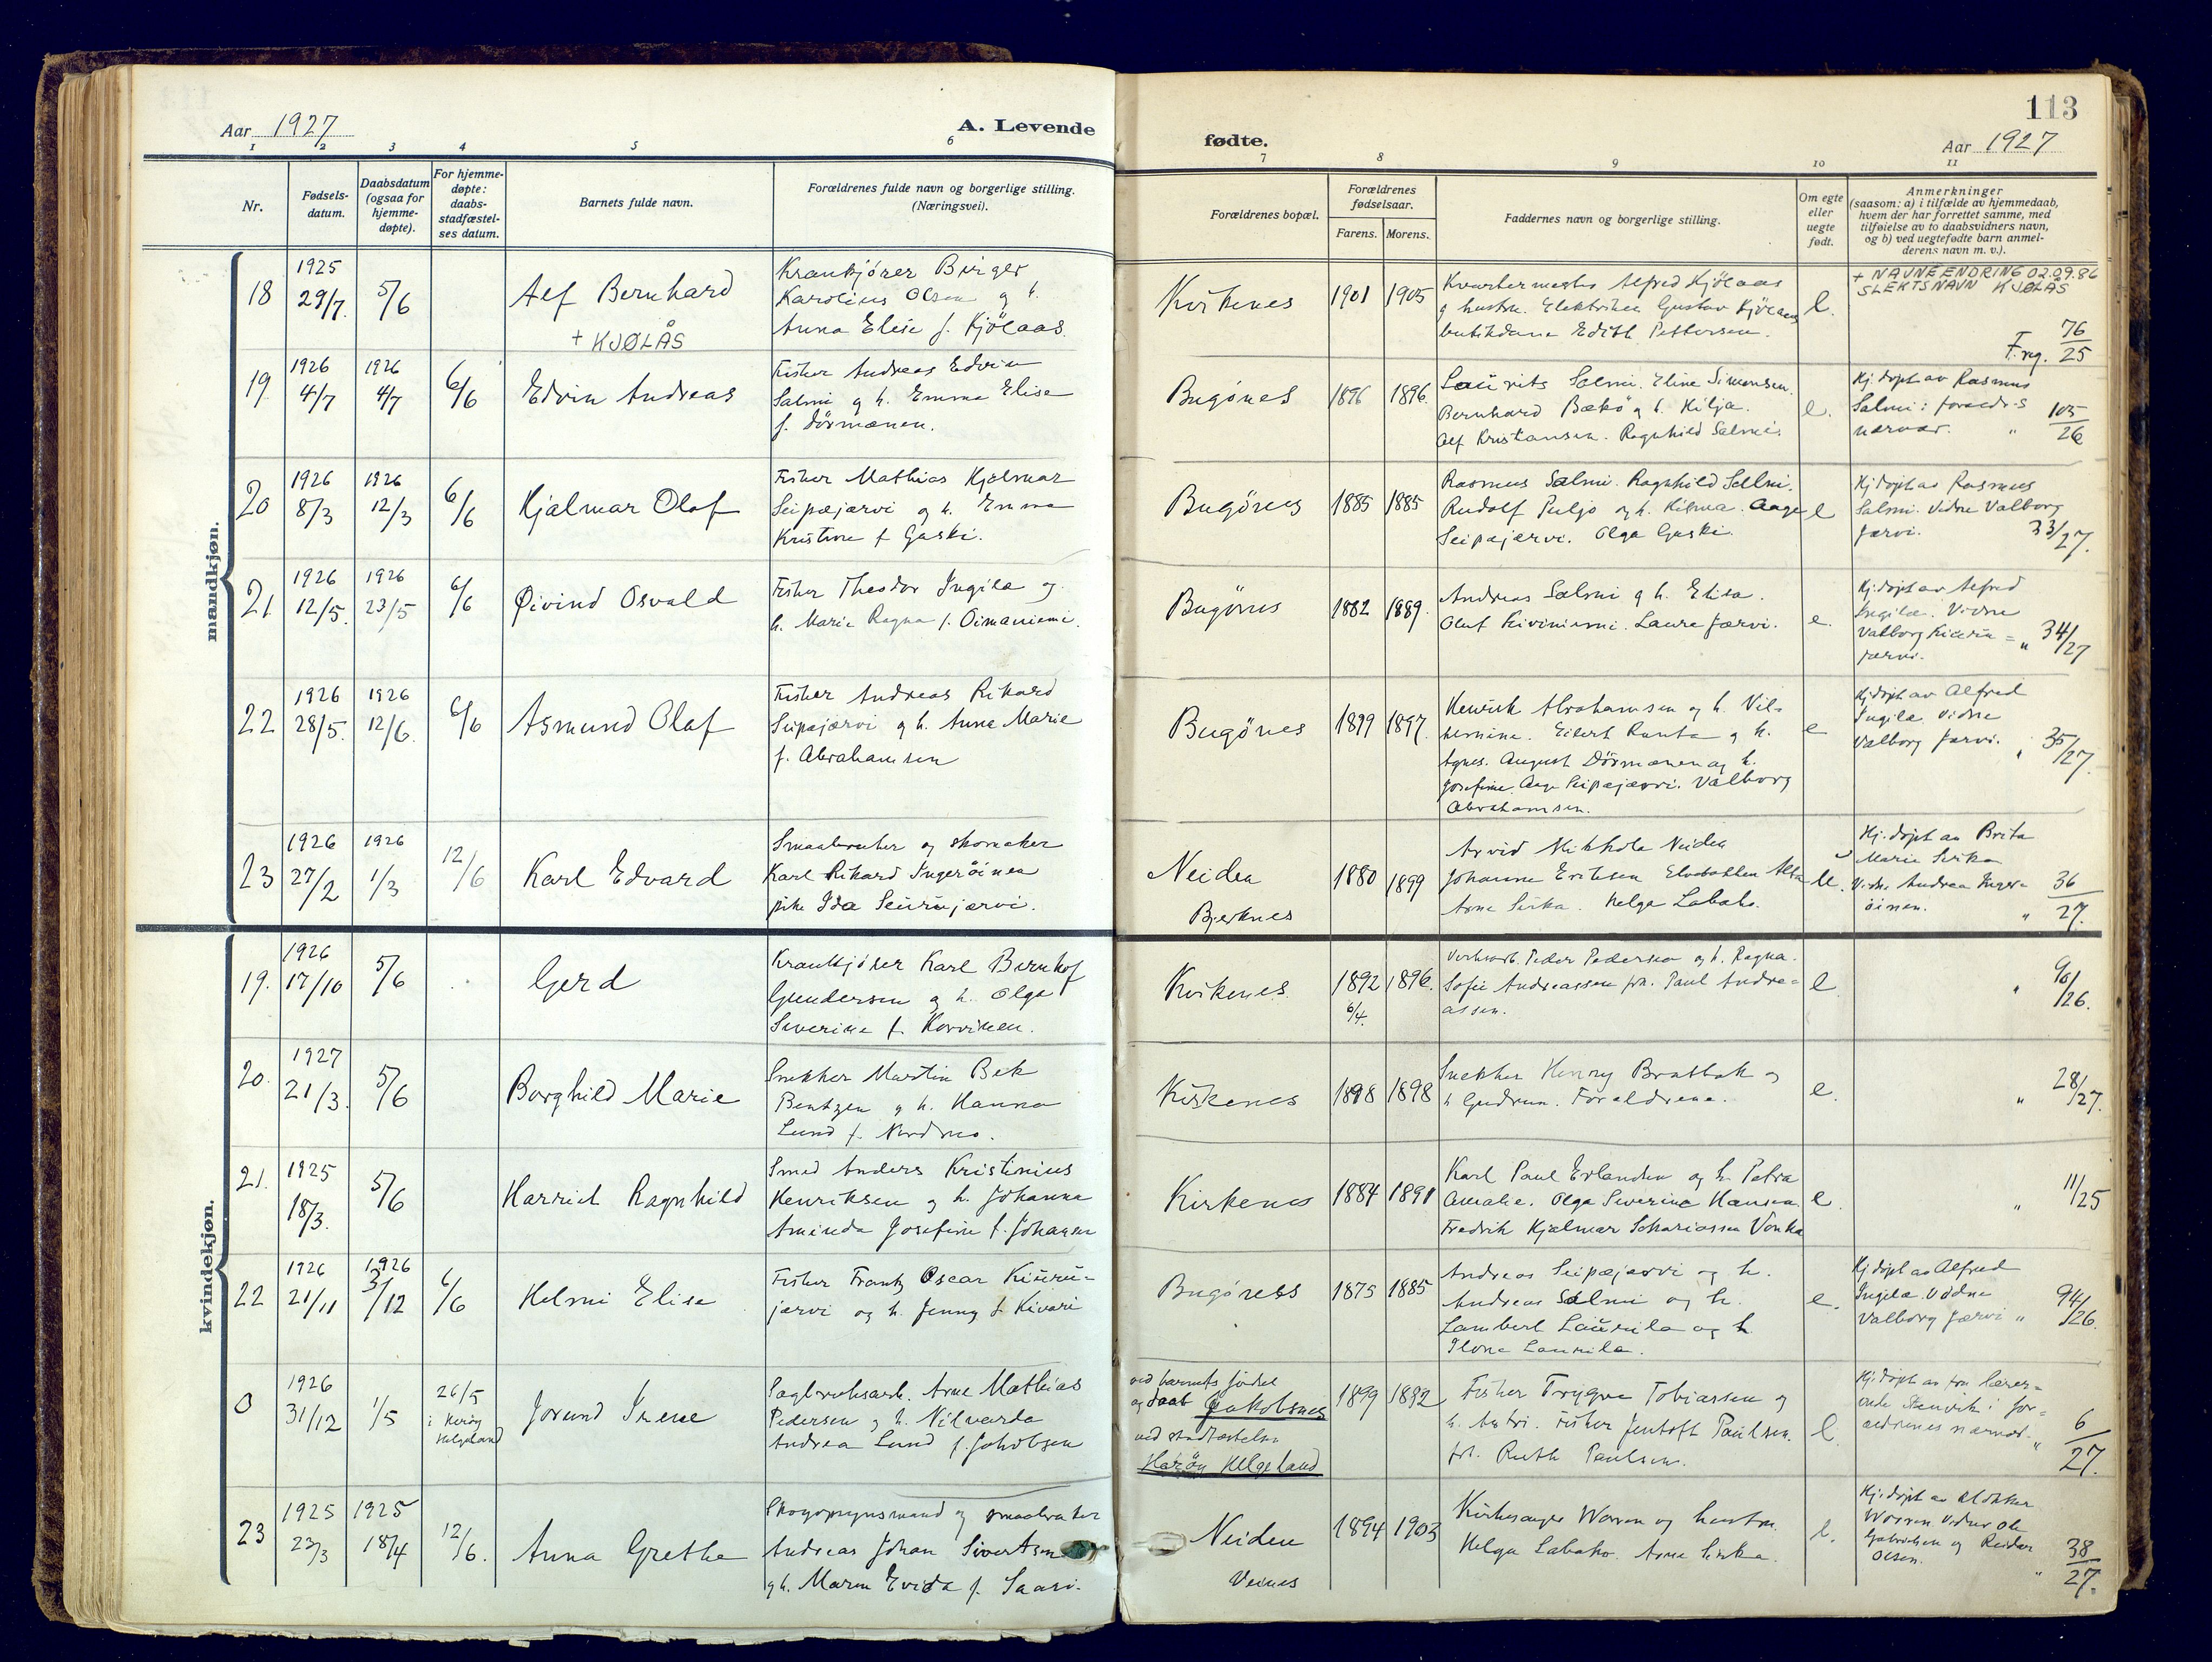 113
Aar 1927
A. Levende
fødte.
Aar 1927
1 2 3 4 5 6
7 8 9 10 11
Nr.
Fødsels-
datum.
Daabsdatum
(ogsaa for
hjemme-
døpte).
For hjemme-
døpte:
daabs-
stadfæstel-
ses datum.
Barnets fulde navn.
Forældrenes fulde navn og borgerlige stilling.
(Næringsvei).
Forældrenes bopæl.
Forældrenes
fødselsaar.
Farens. Morens.
Faddernes navn og borgerlige stilling.
Om egte
eller
uegte
født.
Anmerkninger
(saasom: a) i tilfælde av hjemmedaab,
hvem der har forrettet samme, med
tilføielse av to daabsvidners navn,
og b) ved uegtefødte barn anmel-
derens navn m. v.).
mandkjøn.
18
1925
29/7.
5/6
Alf Bernhard
+ KJØLÅS
Krankjører Birger
Karolius Olsen og h.
Anna Elise f. Kjölaas.
Kirkenes
1901
1905
Kvartermester Alfred Kjölaas
g hustru. Elektriker Gustav Kjölaas
butikdame Edith Pettersen.
+ NAVNEENDRING 02.09.86
SLEKTSNAVN KJØLÅS
F. reg. 76/25
19
1926
4/7
1926
4/7
6/6
Edvin Andreas
Fisker Andreas Edvin
Salmi g h. Emma Elise
f. Dörmænen.
Bugönes
1896
1896.
Laurits Salmi. Eline Simonsen.
Bernhard Bækö g h. Hilja.
Alf Kristansen. Ragnhild Salmi.
e.
Hj. døpt av Rasmus
Salmi i foreldr-s
nærvær. " 105/26
20
1926
8/3
1926
12/3
6/6
Hjalmar Olaf
Fisker Mathias Hjalmar
Seipæjærvi og h. Emma
Kristine f Gaski.
Bugönes
1885
1885
Rasmus Salmi. Ragnhild Salmi.
Rudolf Puljo og h. Hilma. Aage
Seipæjærvi. Olga Gaski.
e
Hj døpt av Rasmus
Salmi. Vidne Valborg
Jærvi. 33/27.
21
1926
12/5.
1926
23/5
6/6
Øivind Osvald
Fisker Theodor Ingila og
h. Marie Ragna f. Oimaniemi.
Bugönes
1882
1889.
Andreas Salmi g h. Elisa.
Oluf Kiviniemi. Laura Jærvi.
e.
Hj. døpt av Alfred
Ingila. Vidne
Valborg Kiuru =
jærvi. " 34/27
22
1926
28/5.
1926
12/6.
6/6
Asmund Olaf
Fisker Andreas Rikard
Seipæjærvi og h. Anna Marie
f. Abrahamsen
Bugönes
1899
1897.
Henrik Abrahamsen og h. Vil-
helmine. Eilert Ranta g h.
Agnes. August Dörmænen og h.
Josefine. Aage Seipæjærvi. Valborg
Abrahamsen.
e
Hj døpt av Alfred
Ingila. Vidne
Valborg Jærvi. " 35/27.
23
1926
27/2
1926
1/3
12/6
Karl Edvard
Smaabruker og skomaker
Karl Rikard Ingeröinen
pike Ida Seurujærvi.
Neiden
Bjerknes
1880
1899
Arvid Mikkola Neiden
Johanne Eriksen Elvebakken Alta
Arne Sirka. Helga Labaho.
Hj. døpt av Brita
Marie Sirka
Vidne Andrea Inger-
öinen. " 36/27.
kvindekjøn.
19.
1926
17/10
5/6
Gerd
Krankjörer Karl Bernhof
Gundersen og h. Olga
Severine f. Korvinen.
Kirkenes
1892
6/4.
1896.
Verksarb. Peder Pedersen og h. Ragna.
Sofie Andreassen frk. Paul Andre-
assen.
e
" 90/26.
20.
1927
21/3.
5/6
Borghild Marie
Snekker Martin Bek
Bentzen g h. Hanna
Lund f. Nordmo.
Kirkenes
1898
1898
Snekker Henry Brattbak og
h Gudrun. Foreldrene.
e.
" 28/27.
21.
1925
18/3.
5/6
Harriet Ragnhild
Smed Anders Kristinius
Henriksen og h. Johanna
Aminda Josefine f. Johansen
Kirkenes
1884
1891
Karl Paul Erlandsen og h. Petra
Amalie. Olga Severine Hansen.
Fredrik Hjalmar Sakariassen Vonka
e.
" 11/25
22
1926
21/11
1926
3/12
6/6
Helmi Elise
Fisker Frantz Oscar Kiuru-
jærvi og h. Jenny f Kivari
Bugönes
1875
1885
Andreas Seipæjærvi og h.
Andreas Salmi og h.
Lambert Laurila og h
Ilona Laurila.
e.
Hj døpt av Alfred
Ingila. Vidne
Valborg Jærvi " 94/26.
0
1926
31/12
1/5
26/5
i Herøy
Helgeland
Jorund Irene
Sagbruksarb. Arne Mathias
Pedersen g h. Nilvarda
Andrea Lund f. Jakobsen
ved barnets födsel
og daab Jakobsnes
ved stadfæstelsen
Herøy Helgeland
1899
1892
Fisker Trygve Tobiassen g
h. Astri. Fisker Jentoft Paulsen.
frk. Ruth Paulsen.
e.
Hj. døpt av fru lærer-
inde Stenvik i for-
ældrenes nærvær. " 6/27.
23
1925
23/3
1925
18/4
12/6.
Anna Grethe
Skogopsynsmand og smaabruker
Andreas Johan Sivertsen
g h. Maren Evida f. Saari.
Neiden
Veines
1894
1903
Kirkesanger Wæren og hustru.
Helga Labaho. Arne Sirka.
e.
Hj. døpt av klokker
Wæren. Vidner Ole
Gabrielsen og Reidar
Olsen. " 38/27.